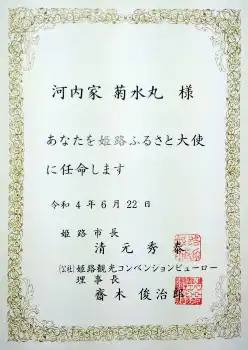 河内家 菊水丸 様
あなたを姫路ふるさと大使
に任命します
令和4年6月22日
姫路市長
清元秀泰
(公社)姫路観光コンベンションビューロー
理事長
齋木俊治郎